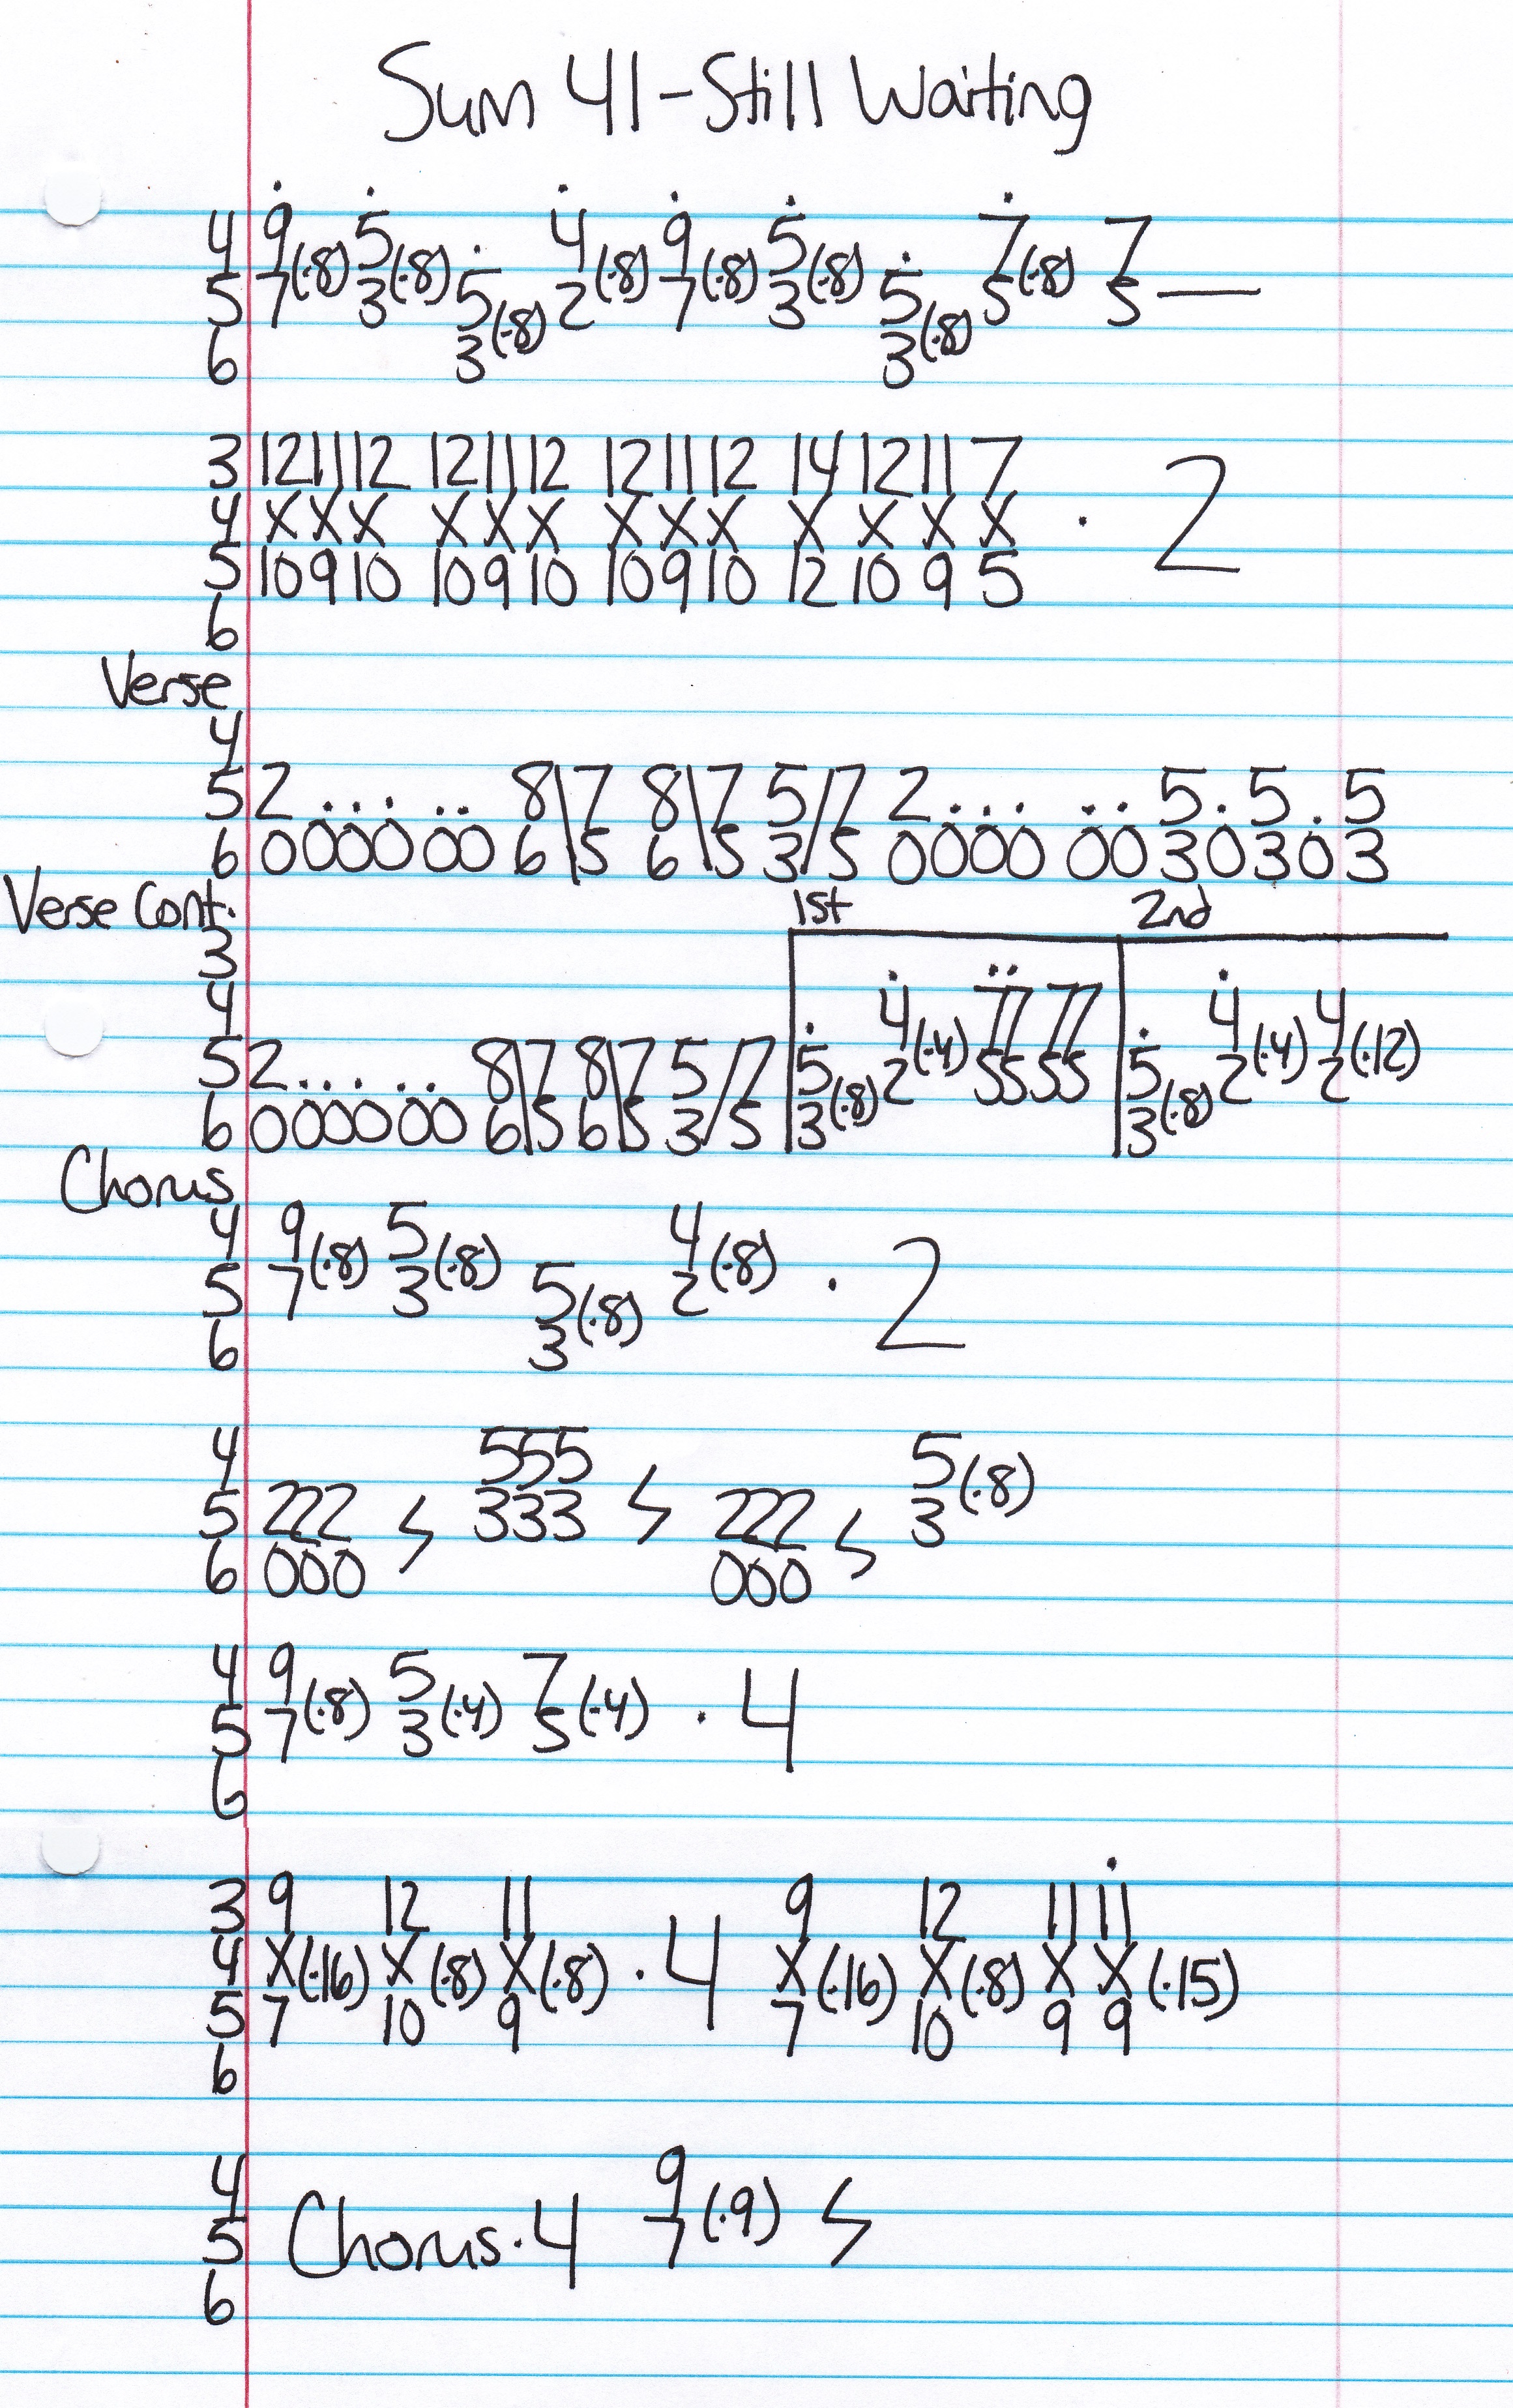 Sum 41-Still Waiting
4 9 5 4 9 5 7 7
5 7(·8) 3(·8) 5 2(·8) 7(·8) 3(·8) 5 5(·8) 5—
6 3(·8) 3(·8)
3 12 11 12 12 11 12 12 11 12 14 12 11 7
4 X X X X X X X X X X X X X · 2
5 10 9 10 10 9 10 10 9 10 12 10 9 5
6
Verse
4
5 2 . . . . . 8\7 8\7 5/7 2 . . . . . 5 . 5 . 5
6 0 0 0 0 0 0 6\5 6\5 3/5 0 0 0 0 0 0 3 0 3 0 3
Verse Cont. 1st 2nd
3
4 4 7 7 7 7 4 4
5 2 . . . . . 8\7 8\7 5/7 5 2(·4) 5 5 5 5 5 2(·4) 2(·12)
6 0 0 0 0 0 0 6\5 6\5 3/5 3(·8) 3(·8)
Chorus
4 9 5 4
5 7(·8) 3(·8) 5 2(·8) · 2
6 3(·8)
4 555 5
5 222 333 222 3(·8)
6 000 000
4 9 5 7
5 7(·8) 3(·4) 5(·4) · 4
6
3 9 12 11 9 12 11 11
4 X(·16) X(·8) X(·8) · 4 X(·16) X(·8) X X(·15)
5 7 10 9 7 10 9 9
6
4 9
5 Chorus·4 7(·9)
6